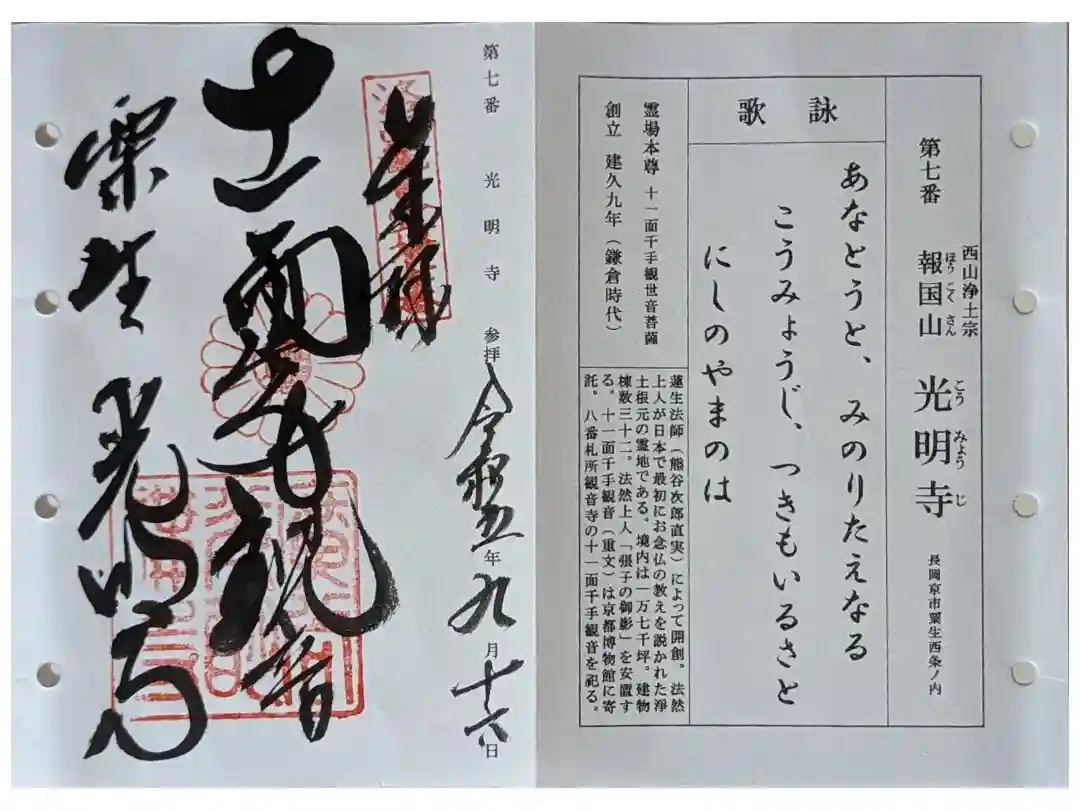 西山浄土宗
第七番 報国山 光明寺 長岡京市粟生西条ノ内
ほうこくさん こうみょうじ
詠歌
あなとうと、みのりたえなる
こうみょうじ、つきもいるさと
にしのやまのは
霊場本尊 十一面千手観世音菩薩
創立 建久九年（鎌倉時代）
蓮生法師（熊谷次郎直実）によって開創。法然
上人が日本で最初にお念仏の教えを説かれた浄
土根元の霊地である。境内は一万七千坪。建物
棟数三十二。法然上人「張子の御影」を安置す
る。十一面千手観音（重文）は京都博物館に寄
託。八番札所観音寺の十一面千手観音を祀る。
第七番 光明寺 参拝 令和五年九月十六日
奉拝
十一面千手観音
粟生 光明寺